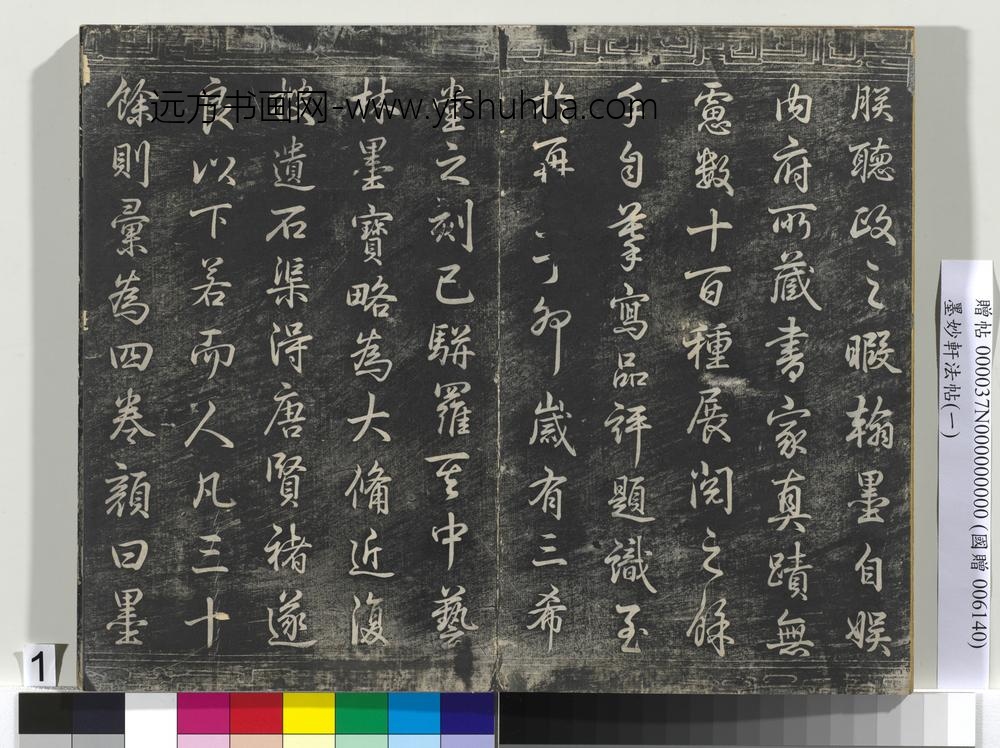 朕聽政之暇翰墨自娛
內府所藏書家真蹟無
慮數十百種展閱之餘
手自摹寫品評題識至
於再丁卯歲有三希
堂之刻已駢羅其中藝
林墨寶略為大備近復
遺石渠得唐賢褚遂
良以下若而人凡三十
餘則彙為四卷顏曰墨
远方书画网-www.yfshuhua.com
贈帖 000037N000000000 (國贈 006140)
墨妙軒法帖(一)
1